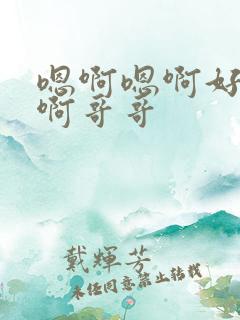 嗯啊嗯啊好
啊哥哥
戴輝芳
未经同意禁止转载